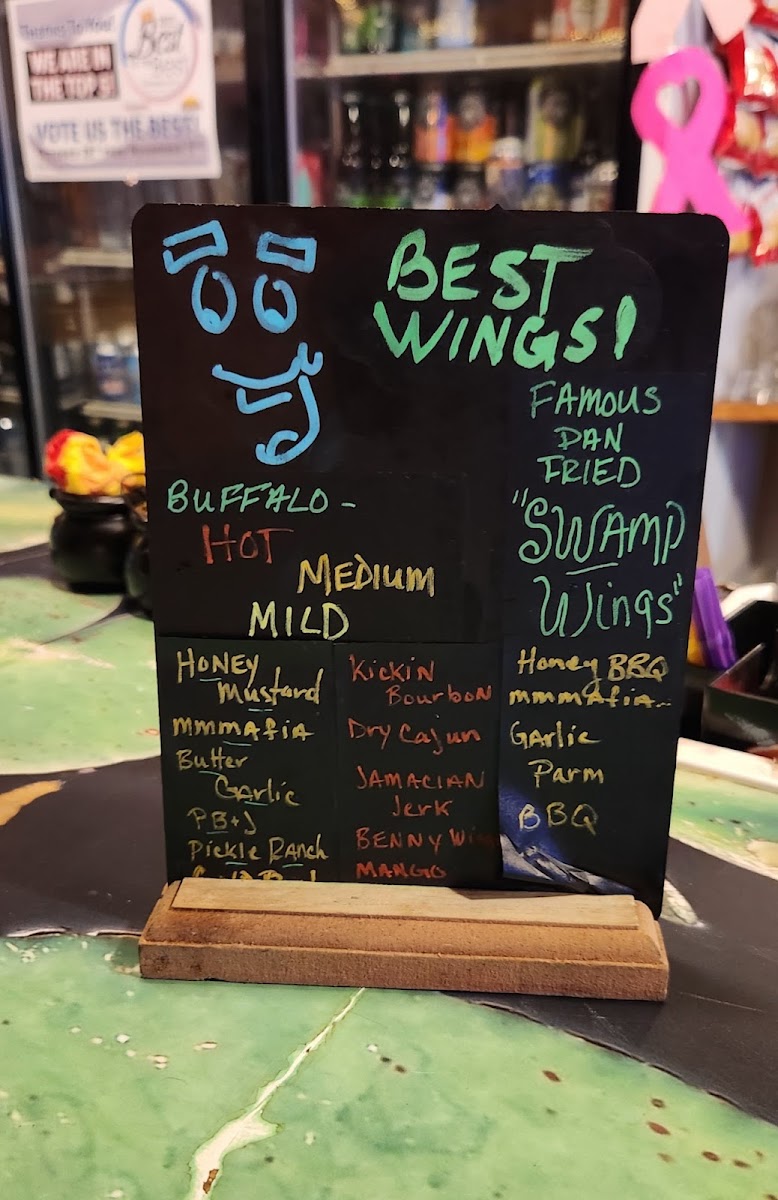 WE ARE IN
THE TOP 5!
VOTE US THE BEST!
Best
BEST
WINGS!
FAMOUS
PAN
FRIED
"SWAMP
Wings"
BUFFALO -
HOT
MEDIUM
MILD
HONEY
Mustard
mmmAfia
Butter
GArlic
PB+J
Pickle RAnch
KickiN
BourboN
Dry Cajun
JAMACIAN
Jerk
BENNY
MANGO
Honey BBQ
mmmAfia..
GArlic
Parm
BBQ